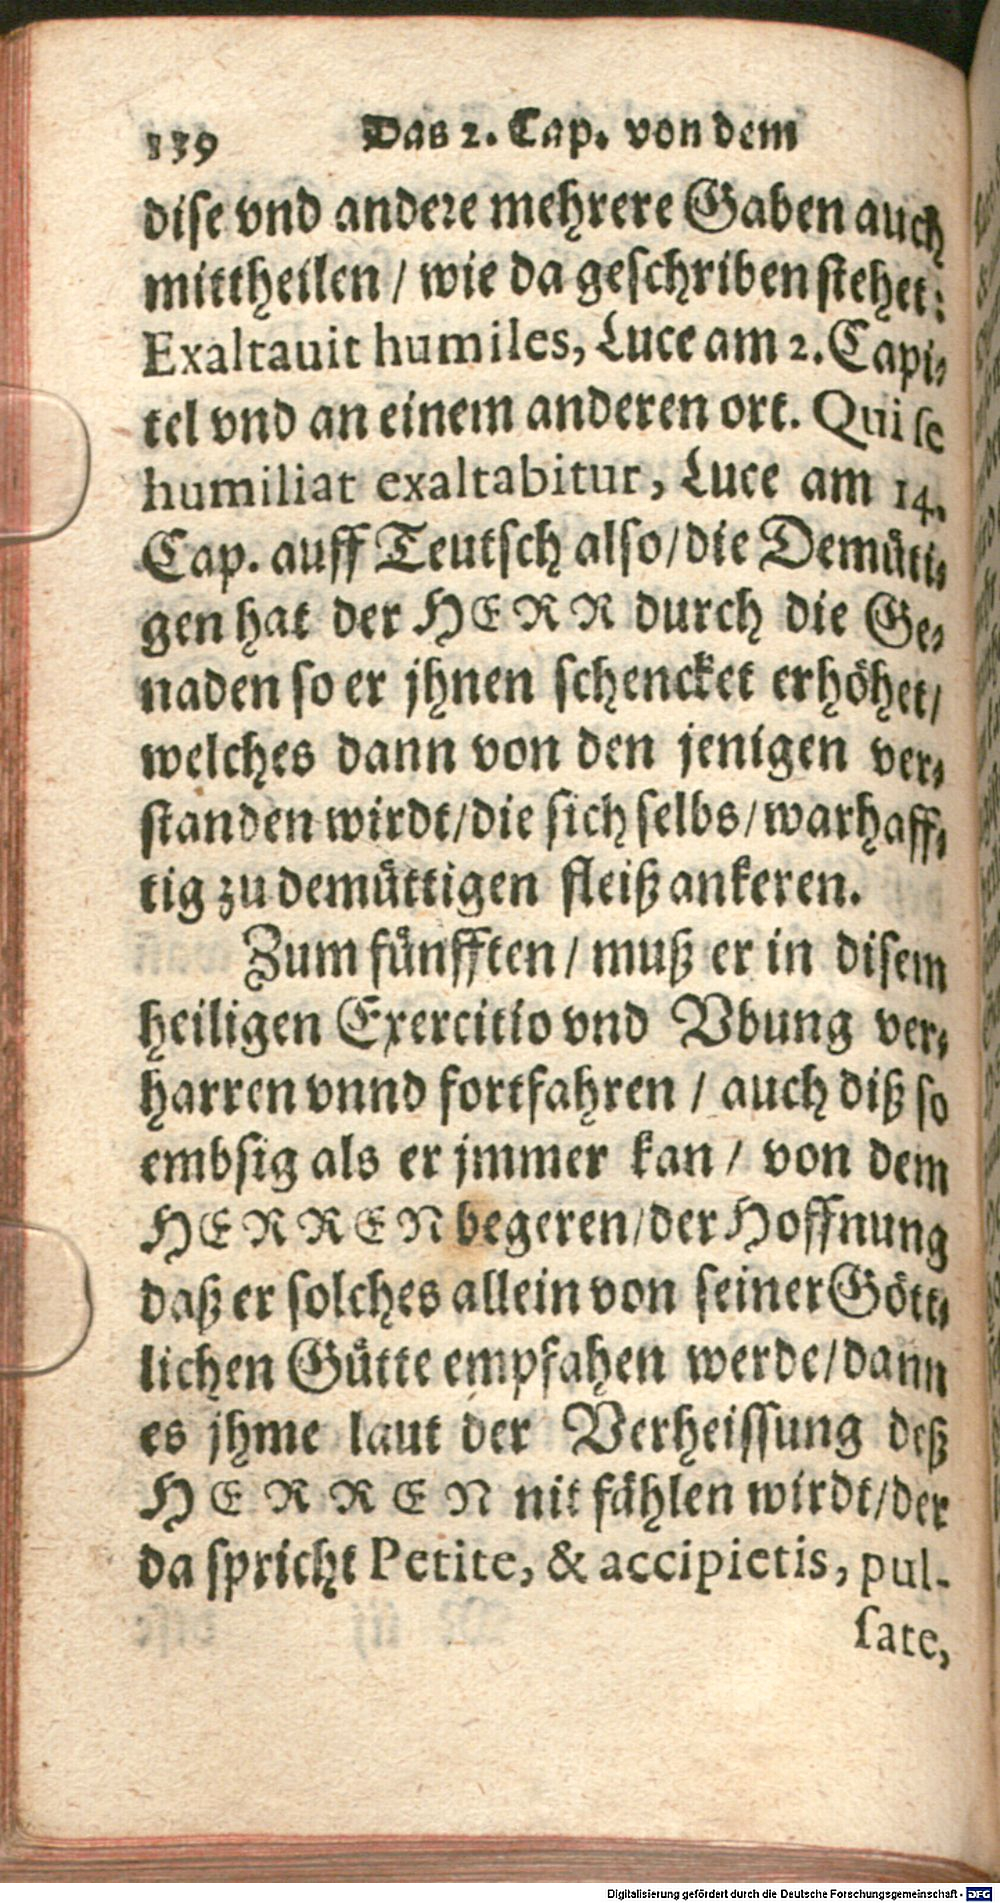 139 Das 2. Cap. von dem
dise vnd andere mehrere Gaben auch
mittheilen / wie da geschriben stehet:
Exaltauit humiles, Luce am 2. Capi-
tel vnd an einem anderen ort. Qui se
humiliat exaltabitur, Luce am 14.
Cap. auff Teutsch also/die Demüti-
gen hat der HERR durch die Ge-
naden so er jhnen schencket erhöhet/
welches dann von den jenigen ver-
standen wirdt/die sich selbs/warhaff-
tig zu demüttigen fleiß ankeren.
Zum fünfften / muß er in disem
heiligen Exercitio vnd Vbung ver-
harren vnnd fortfahren / auch diß so
embsig als er jmmer kan / von dem
HERREN begeren/der Hoffnung
daß er solches allein von seiner Gött-
lichen Gütte empfahen werde/dann
es jhme laut der Verheissung deß
HERREN nit fählen wirdt/der
da spricht Petite, & accipietis, pul-
sate,
Digitalisierung gefördert durch die Deutsche Forschungsgemeinschaft - DFG